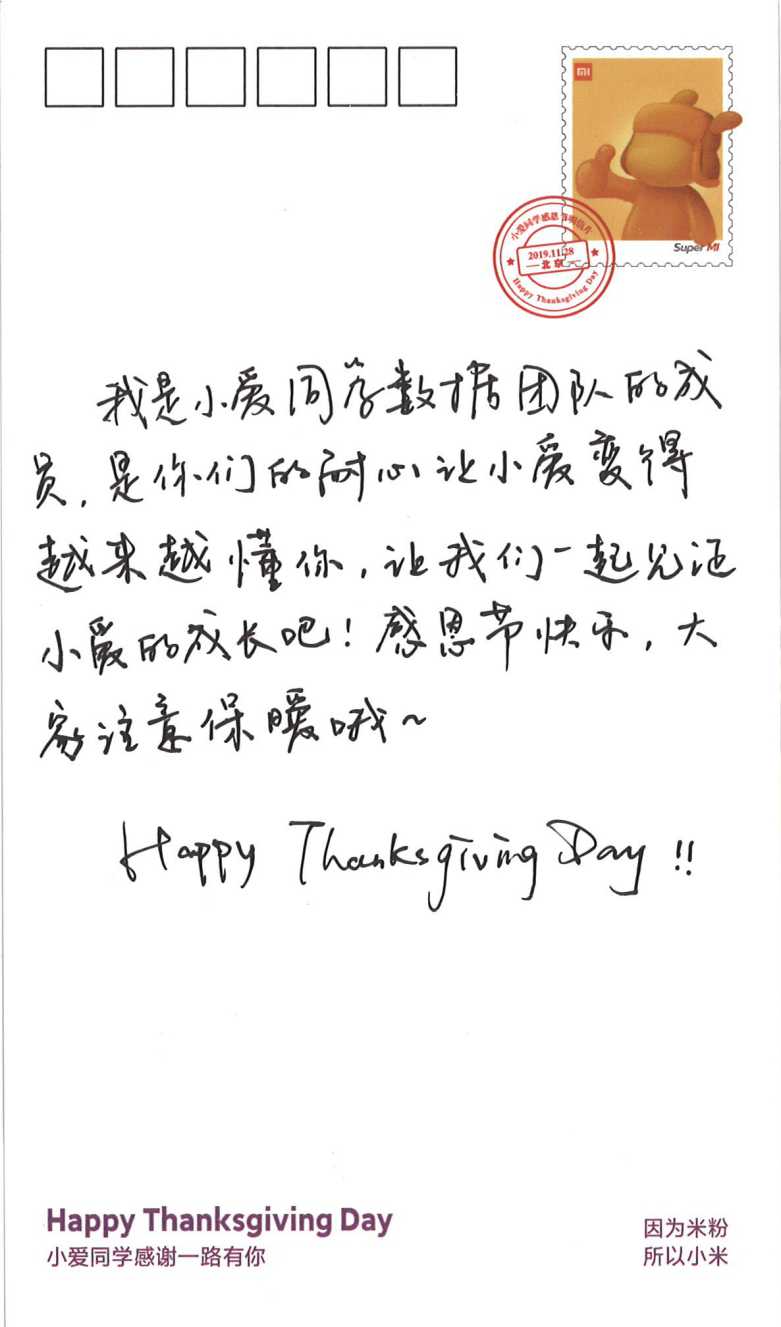 MI
Super MI
小爱同学感恩节明信片
2019.11.28
北京
Happy Thanksgiving Day
我是小爱同学数据团队的成
员，是你们的耐心让小爱变得
越来越懂你，让我们一起见证
小爱的成长吧！感恩节快乐，大
家注意保暖哦～
Happy Thanksgiving Day !!
Happy Thanksgiving Day
小爱同学感谢一路有你
因为米粉
所以小米